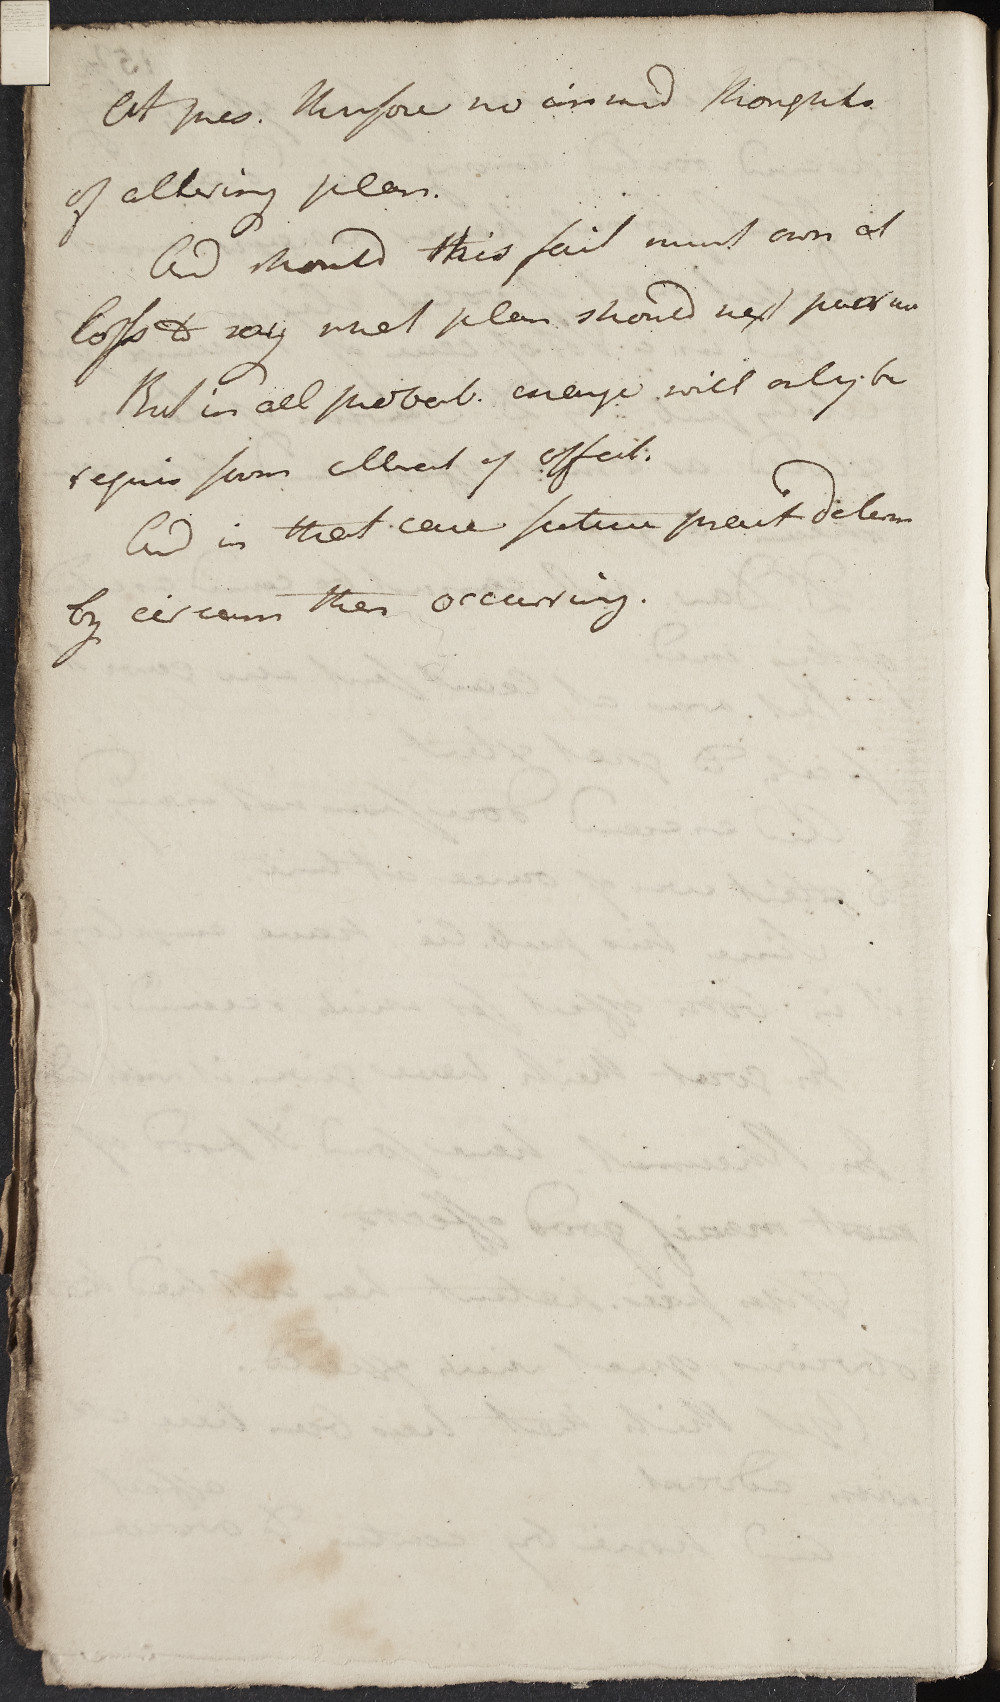 At pres. therefore no thoughts
of altering plan.
And should this fail must own at
loss to say what plan should next pursue
But in all probab. change will only be
requir from abat of affect.
And in that case future pract determ
by circum then occurring.